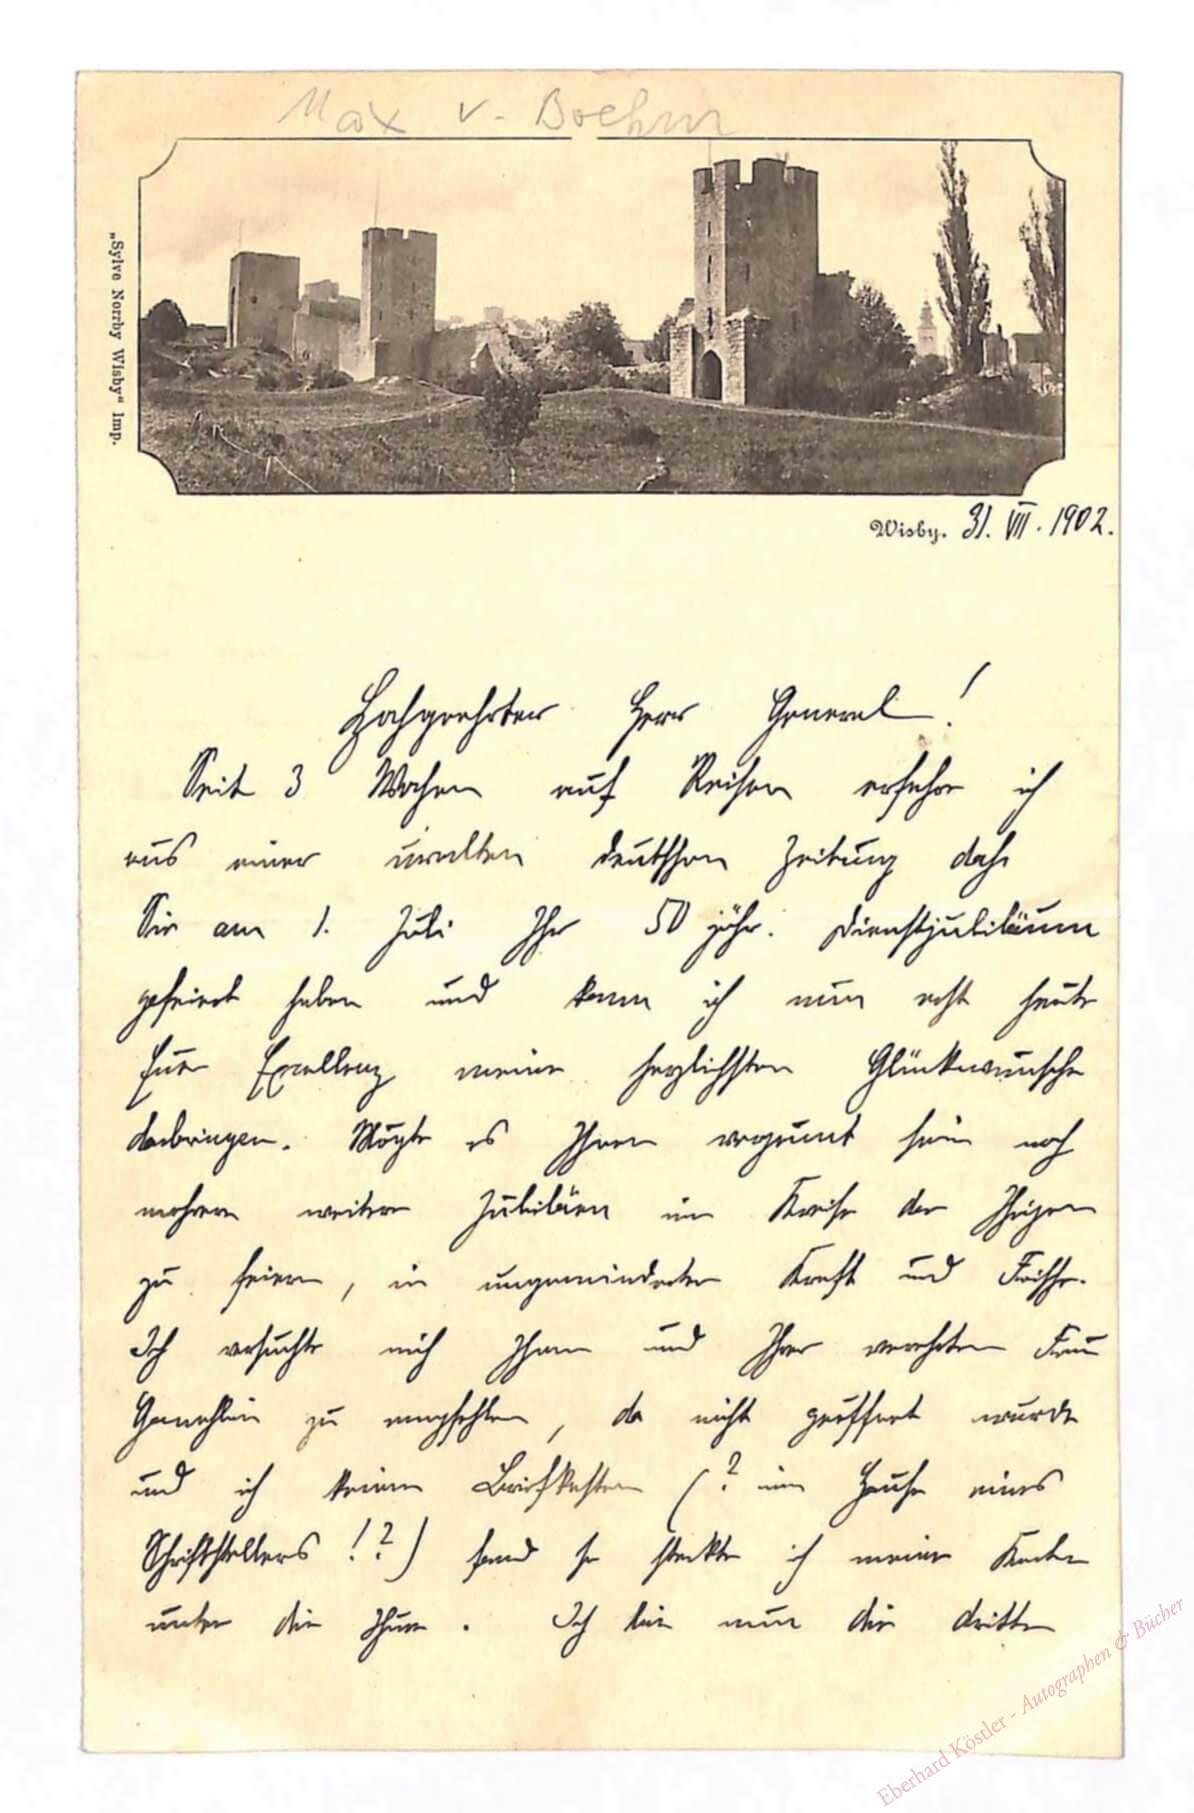 Max v. Boehm
„Sylve Norrby Wisby“ Imp.
Wisby. 31. VII. 1902.
Hochgeehrter Herr General!
Seit 3 Wochen auf Reisen erfahre ich
aus einer uralten deutschen Zeitung daß
Sie am 1. Juli Ihr 50 jähr. Dienstjubiläum
gefeiert haben und kann ich nun erst heute
Euer Excellenz meine herzlichsten Glückwünsche
darbringen. Mögte es Ihnen vergönnt sein noch
mehrere weitere Jubiläen im Kreise der Ihrigen
zu feiern, in ungeminderter Kraft und Frische.
Ich versuchte mich Ihnen und Ihrer verehrten Frau
Gemahlin zu empfehlen, da nicht geöffnet wurde
und ich keinen Briefkasten (? im Hause eines
Schriftstellers !?) fand so steckte ich meine Karte
unter die Thüre. Ich bin nun die dritte
Eberhard Köstler - Autographen & Bücher